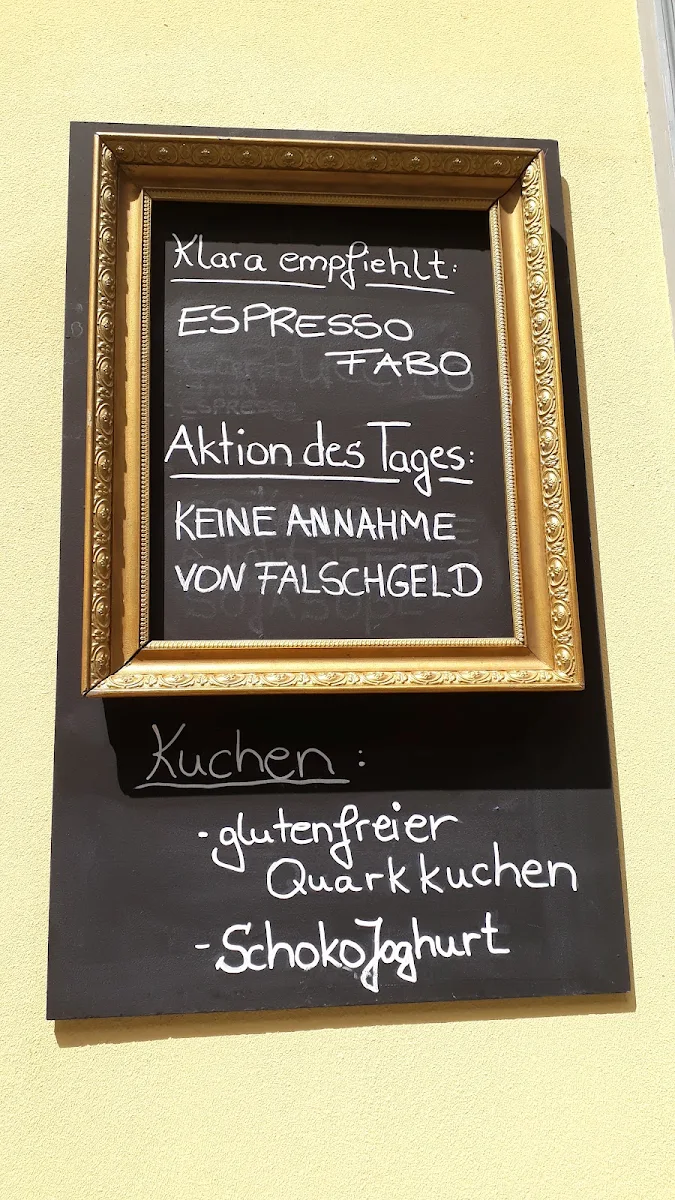 Klara empfiehlt:
ESPRESSO
FABO
Aktion des Tages:
KEINE ANNAHME
VON FALSCHGELD
Kuchen:
-glutenfreier
Quarkkuchen
-SchokoJoghurt